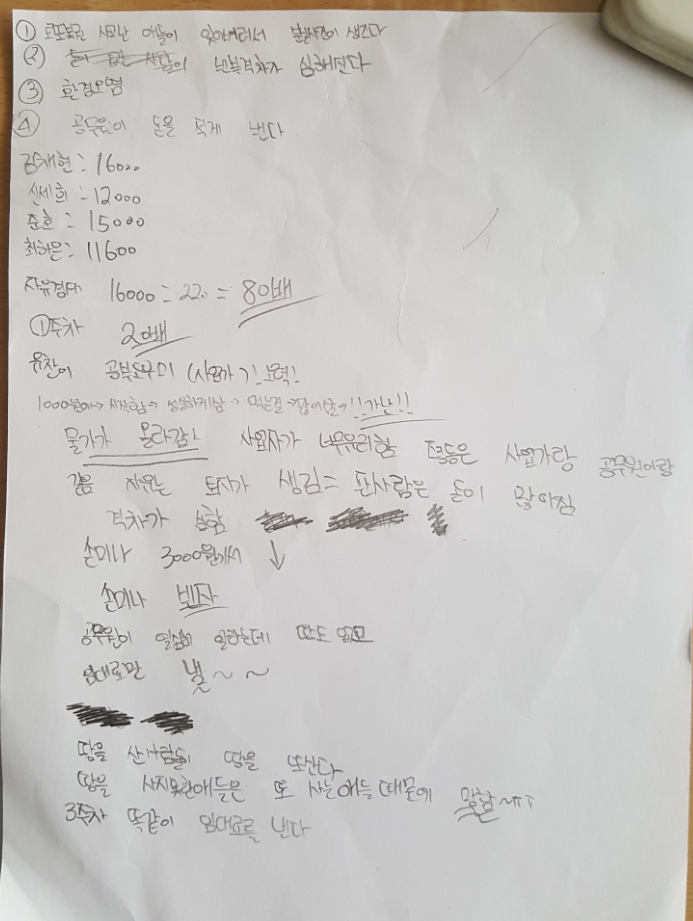 ① 로또복권 사고난 애들이 있어버려서 분실사건이 생긴다
② 빈부격차가 심해진다
③ 환경오염
④ 공무원이 돈을 적게 낸다
김채현 : 16000
신세희 : 12000
준호 : 15000
최하은 : 11600
자유경매 16000 = 220 = 80배
①주차 20배
유찬이 공부도우미 (사업가)! 노력!
1000원에서→ 시작함→ 성실하게삶→ 먹는걸→많이삼→!!가난!!
물가가 올라감 사업자가 너무유리함 평등은 사업가랑 공무원이랑
같음 자유는 투자가 생김 = 판사람은 돈이 많아짐
격차가 심함
손미나 3000원에서 ↓
손미나 빈자
공무원이 열심히 일하는데 땅도 없고
임대료만 낼~~
땅을 산사람들이 땅을 또산다
땅을 사지못한애들은 또 사는애들때문에 망함ㅜㅜ
3주차 똑같이 임대료를 낸다